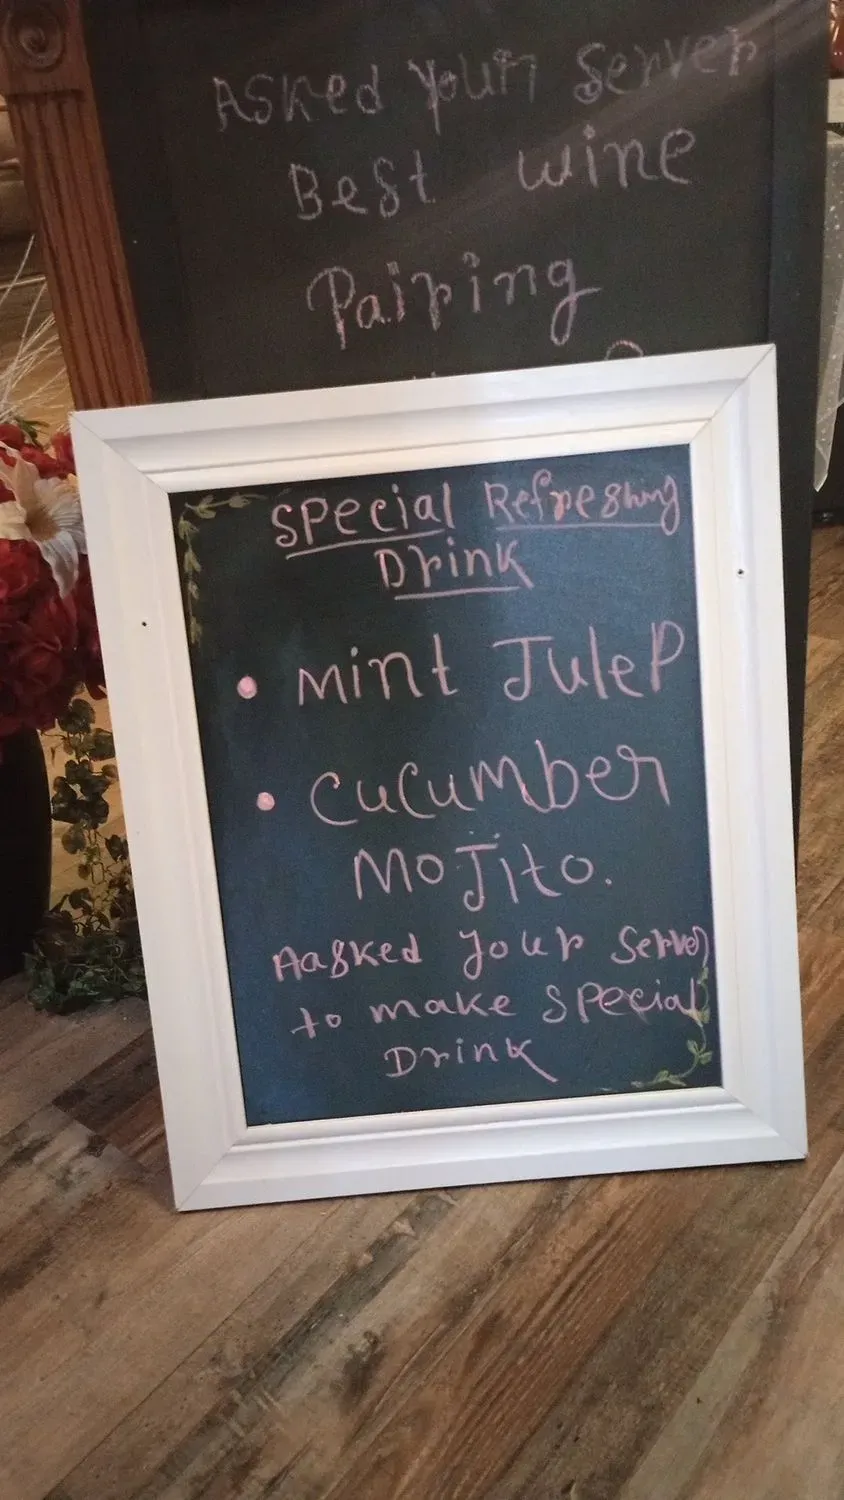 Asked your server
Best wine
Pairing
Special Refreshing
Drink
• Mint Julep
• Cucumber
Mojito.
Aasked your server
to make special
Drink